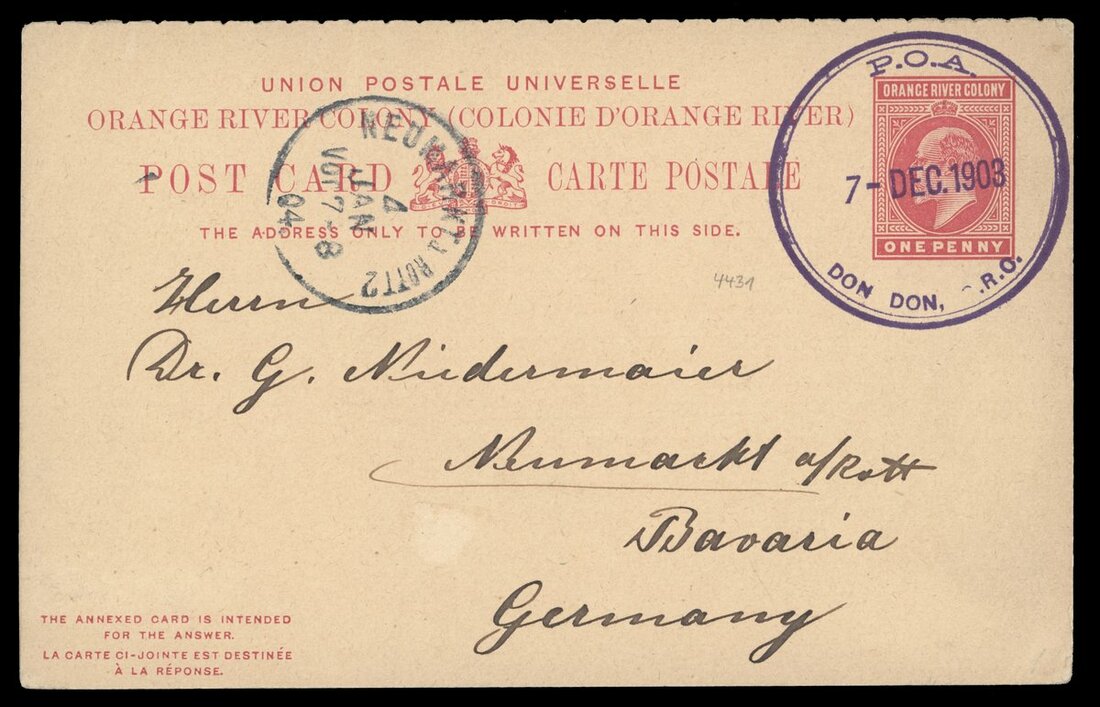 UNION POSTALE UNIVERSELLE
ORANGE RIVER COLONY (COLONIE D'ORANGE RIVER)
POST CARD CARTE POSTALE
THE ADDRESS ONLY TO BE WRITTEN ON THIS SIDE.
P.O.A.
7- DEC. 1903
DON DON, .R.O.
ORANGE RIVER COLONY
ONE PENNY
NEUMARKT A. ROTT 2
4
JAN
VOT 7-8
04
4431
Herrn
Dr. G. Niedermaier
Neumarkt a/Rott
Bavaria
Germany
THE ANNEXED CARD IS INTENDED
FOR THE ANSWER.
LA CARTE CI-JOINTE EST DESTINÉE
À LA RÉPONSE.